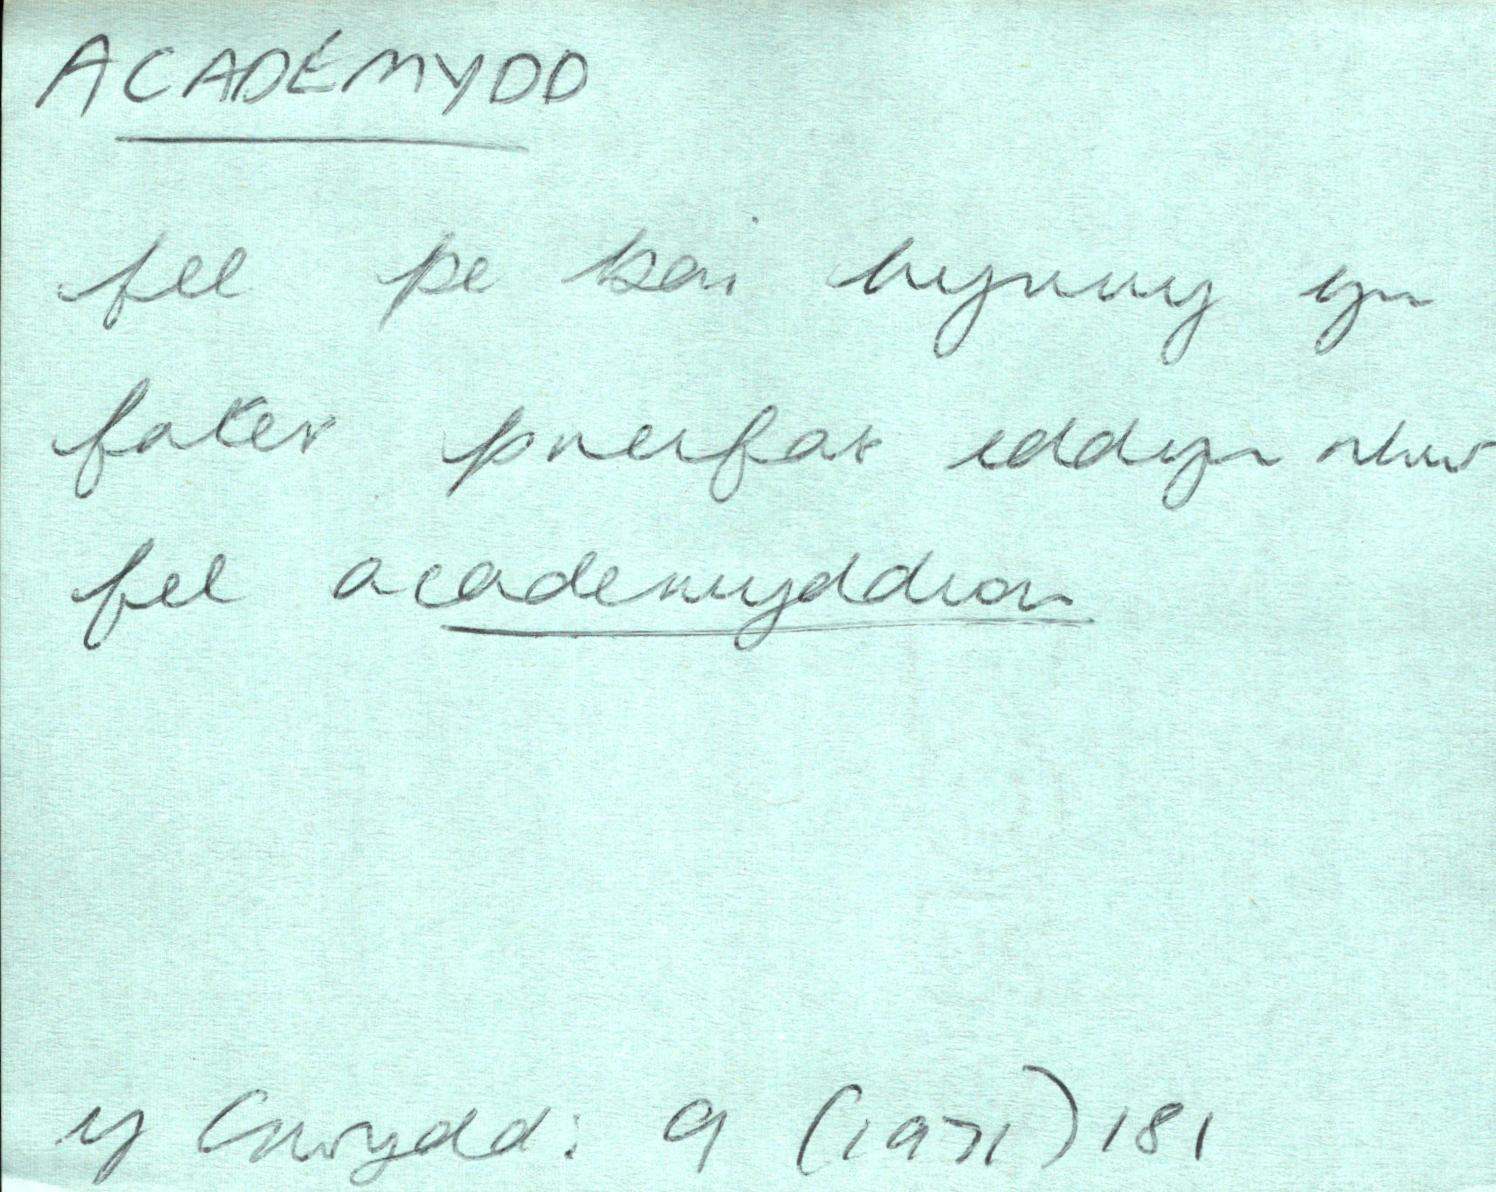 ACADÉMYDD
fel pe bai hynny yn
fater preifat iddyn nhw
fel academyddion
y Crwydd: 9 (1971) 181